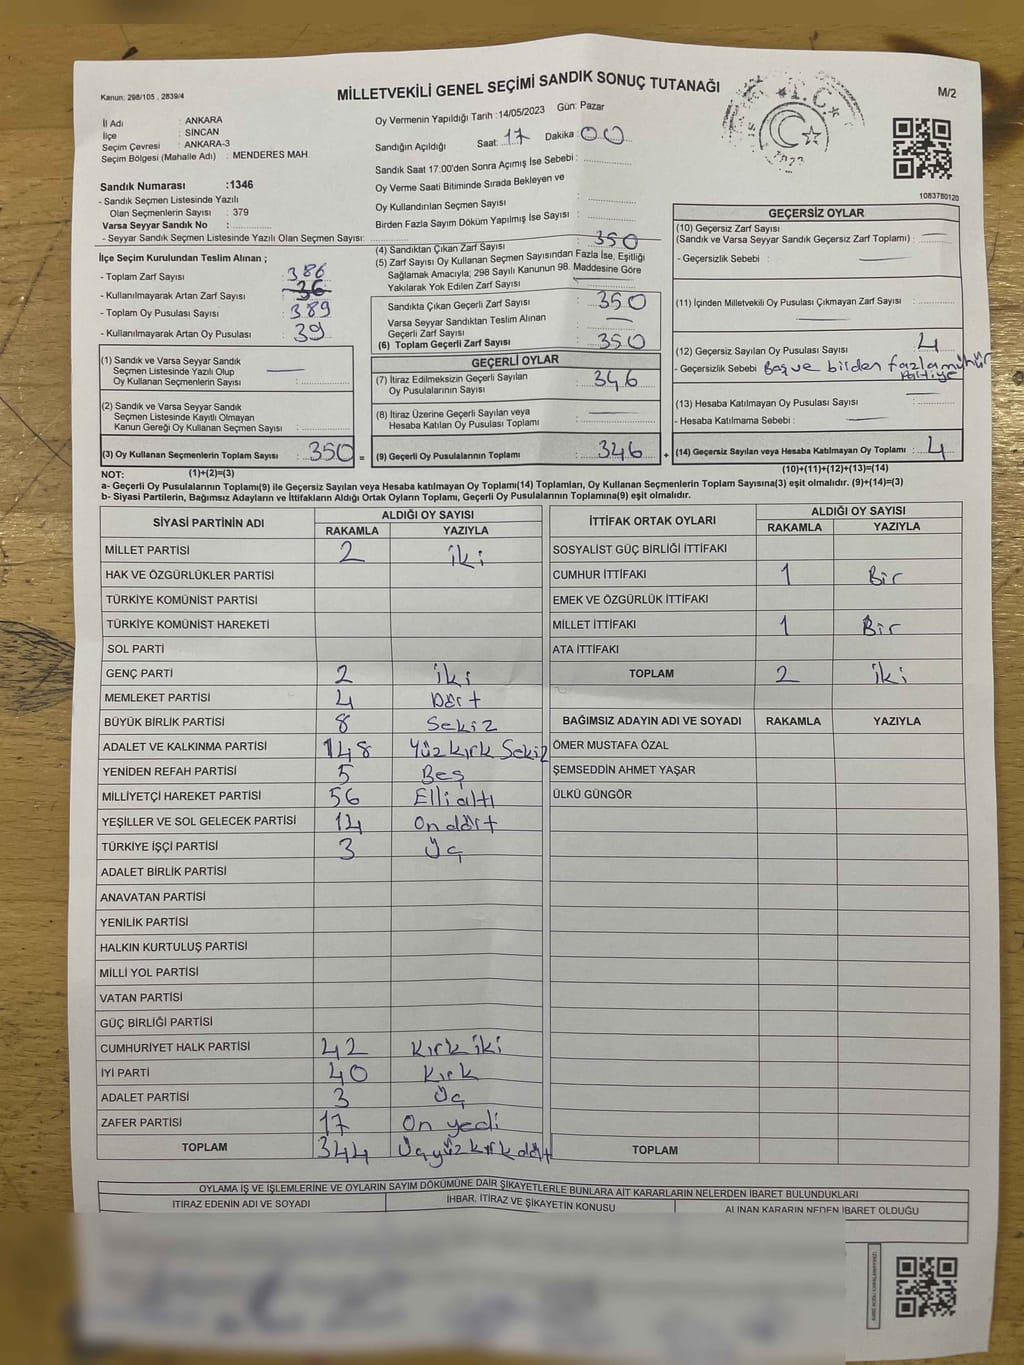 Kanun; 298/105 , 2839/4
MİLLETVEKİLİ GENEL SEÇİMİ SANDIK SONUÇ TUTANAĞI
M/2
T.C.
İl Adı : ANKARA
İlçe : SİNCAN
Seçim Çevresi : ANKARA-3
Seçim Bölgesi (Mahalle Adı) : MENDERES MAH.
Oy Vermenin Yapıldığı Tarih :14/05/2023 Gün: Pazar
Sandığın Açıldığı Saat: 17 Dakika : 00
Sandık Saat 17:00'den Sonra Açımış İse Sebebi :
Oy Verme Saati Bitiminde Sırada Bekleyen ve
Oy Kullandırılan Seçmen Sayısı :
Birden Fazla Sayım Döküm Yapılmış İse Sayısı :
1083780120
Sandık Numarası :1346
- Sandık Seçmen Listesinde Yazılı
Olan Seçmenlerin Sayısı : 379
Varsa Seyyar Sandık No :
- Seyyar Sandık Seçmen Listesinde Yazılı Olan Seçmen Sayısı:
İlçe Seçim Kurulundan Teslim Alınan ;
- Toplam Zarf Sayısı : 386
- Kullanılmayarak Artan Zarf Sayısı : 36
- Toplam Oy Pusulası Sayısı : 389
- Kullanılmayarak Artan Oy Pusulası : 39
(1) Sandık ve Varsa Seyyar Sandık
Seçmen Listesinde Yazılı Olup
Oy Kullanan Seçmenlerin Sayısı : —
(2) Sandık ve Varsa Seyyar Sandık
Seçmen Listesinde Kayıtlı Olmayan
Kanun Gereği Oy Kullanan Seçmen Sayısı :
(3) Oy Kullanan Seçmenlerin Toplam Sayısı : 350 =
(4) Sandıktan Çıkan Zarf Sayısı : 350
(5) Zarf Sayısı Oy Kullanan Seçmen Sayısından Fazla İse, Eşitliği
Sağlamak Amacıyla; 298 Sayılı Kanunun 98. Maddesine Göre
Yakılarak Yok Edilen Zarf Sayısı : —
Sandıkta Çıkan Geçerli Zarf Sayısı : 350
Varsa Seyyar Sandıktan Teslim Alınan
Geçerli Zarf Sayısı : —
(6) Toplam Geçerli Zarf Sayısı : 350
GEÇERLİ OYLAR
(7) İtiraz Edilmeksizin Geçerli Sayılan
Oy Pusulalarının Sayısı : 346
(8) İtiraz Üzerine Geçerli Sayılan veya
Hesaba Katılan Oy Pusulası Toplamı : —
(9) Geçerli Oy Pusulalarının Toplamı : 346 +
GEÇERSİZ OYLAR
(10) Geçersiz Zarf Sayısı
(Sandık ve Varsa Seyyar Sandık Geçersiz Zarf Toplamı) : —
- Geçersizlik Sebebi : —
(11) İçinden Milletvekili Oy Pusulası Çıkmayan Zarf Sayısı :
—
(12) Geçersiz Sayılan Oy Pusulası Sayısı : 4
- Geçersizlik Sebebi : Boş ve birden fazla mühür
Partiye
(13) Hesaba Katılmayan Oy Pusulası Sayısı : —
- Hesaba Katılmama Sebebi : —
(14) Geçersiz Sayılan veya Hesaba Katılmayan Oy Toplamı : 4
NOT: (1)+(2)=(3)
(10)+(11)+(12)+(13)=(14)
a- Geçerli Oy Pusulalarının Toplamı(9) ile Geçersiz Sayılan veya Hesaba katılmayan Oy Toplamı(14) Toplamları, Oy Kullanan Seçmenlerin Toplam Sayısına(3) eşit olmalıdır. (9)+(14)=(3)
b- Siyasi Partilerin, Bağımsız Adayların ve İttifakların Aldığı Ortak Oyların Toplamı, Geçerli Oy Pusulalarının Toplamına(9) eşit olmalıdır.
SİYASİ PARTİNİN ADI ALDIĞI OY SAYISI
RAKAMLA YAZIYLA
MİLLET PARTİSİ 2 iki
HAK VE ÖZGÜRLÜKLER PARTİSİ
TÜRKİYE KOMÜNİST PARTİSİ
TÜRKİYE KOMÜNİST HAREKETİ
SOL PARTİ
GENÇ PARTİ 2 iki
MEMLEKET PARTİSİ 4 Dört
BÜYÜK BİRLİK PARTİSİ 8 Sekiz
ADALET VE KALKINMA PARTİSİ 148 Yüz kırk Sekiz
YENİDEN REFAH PARTİSİ 5 Beş
MİLLİYETÇİ HAREKET PARTİSİ 56 Elli altı
YEŞİLLER VE SOL GELECEK PARTİSİ 14 On dört
TÜRKİYE İŞÇİ PARTİSİ 3 Üç
ADALET BİRLİK PARTİSİ
ANAVATAN PARTİSİ
YENİLİK PARTİSİ
HALKIN KURTULUŞ PARTİSİ
MİLLİ YOL PARTİSİ
VATAN PARTİSİ
GÜÇ BİRLİĞİ PARTİSİ
CUMHURİYET HALK PARTİSİ 42 Kırk iki
İYİ PARTİ 40 Kırk
ADALET PARTİSİ 3 Üç
ZAFER PARTİSİ 17 On yedi
TOPLAM 344 Üçyüz kırk dört
İTTİFAK ORTAK OYLARI ALDIĞI OY SAYISI
RAKAMLA YAZIYLA
SOSYALİST GÜÇ BİRLİĞİ İTTİFAKI
CUMHUR İTTİFAKI 1 Bir
EMEK VE ÖZGÜRLÜK İTTİFAKI
MİLLET İTTİFAKI 1 Bir
ATA İTTİFAKI
TOPLAM 2 iki
BAĞIMSIZ ADAYIN ADI VE SOYADI RAKAMLA YAZIYLA
ÖMER MUSTAFA ÖZAL
ŞEMSEDDİN AHMET YAŞAR
ÜLKÜ GÜNGÖR
TOPLAM
OYLAMA İŞ VE İŞLEMLERİNE VE OYLARIN SAYIM DÖKÜMÜNE DAİR ŞİKAYETLERLE BUNLARA AİT KARARLARIN NELERDEN İBARET BULUNDUKLARI
İTİRAZ EDENİN ADI VE SOYADI İHBAR, İTİRAZ VE ŞİKAYETİN KONUSU ALINAN KARARIN NEDEN İBARET OLDUĞU